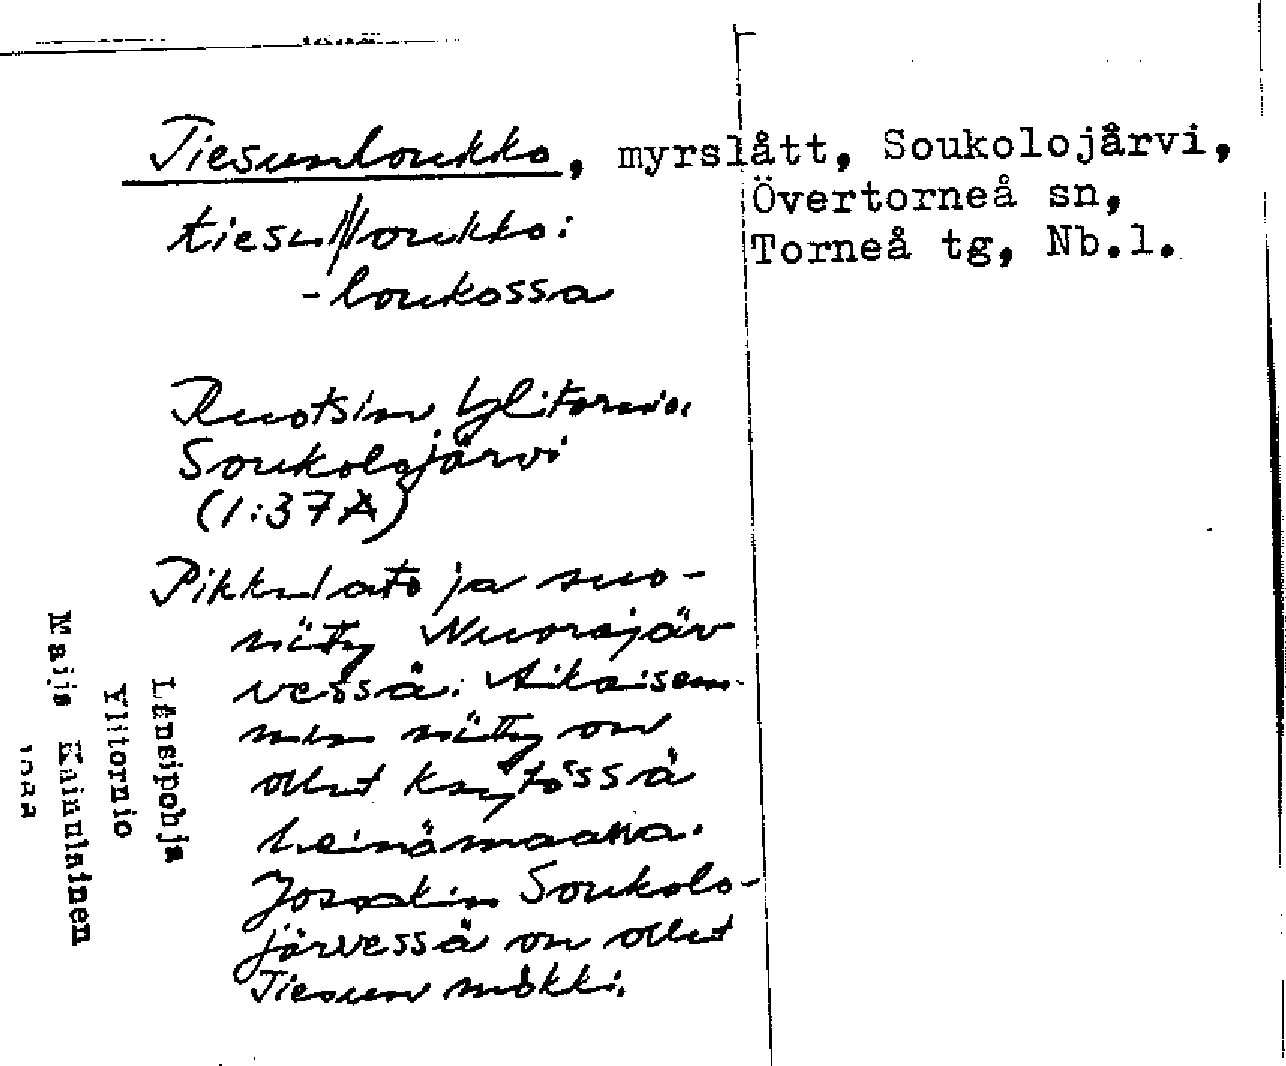 Tiesunloukko, myrslått, Soukolojärvi,
Övertorneå sn,
Torneå tg, Nb.l.
tiesu//loukko:
-loukossa
Ruotsin Ylitornio.
Soukolojärvi
(1:37A)
Pikkulato ja suo-
niitty Nuorajär
vessä. Aikaisem-
min niitty on
ollut käytössä
heinämaana.
Jossakin Soukolo-
järvessä on ollut
Tiesun mökki.
Länsipohja
Ylitornio
Maija Kainulainen